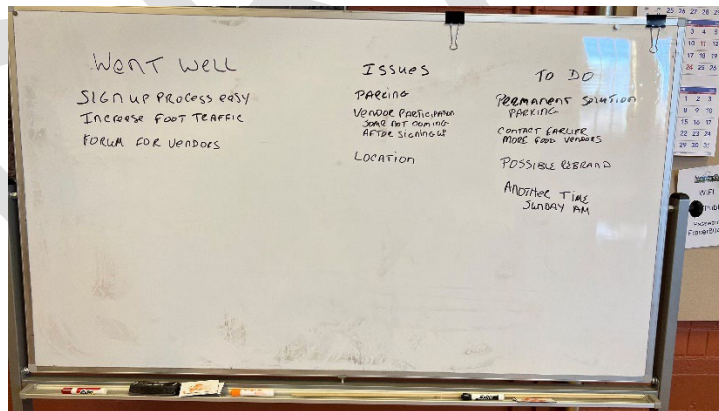 Went Well
Sign up Process easy
Increase Foot Traffic
Forum for Vendors
Issues
Parking
Vendor Participation
Some not coming
After signing up
Location
To Do
Permanent solution
Parking
Contact Earlier
More food vendors
Possible Rebrand
Another Time
Sunday AM
WiFi